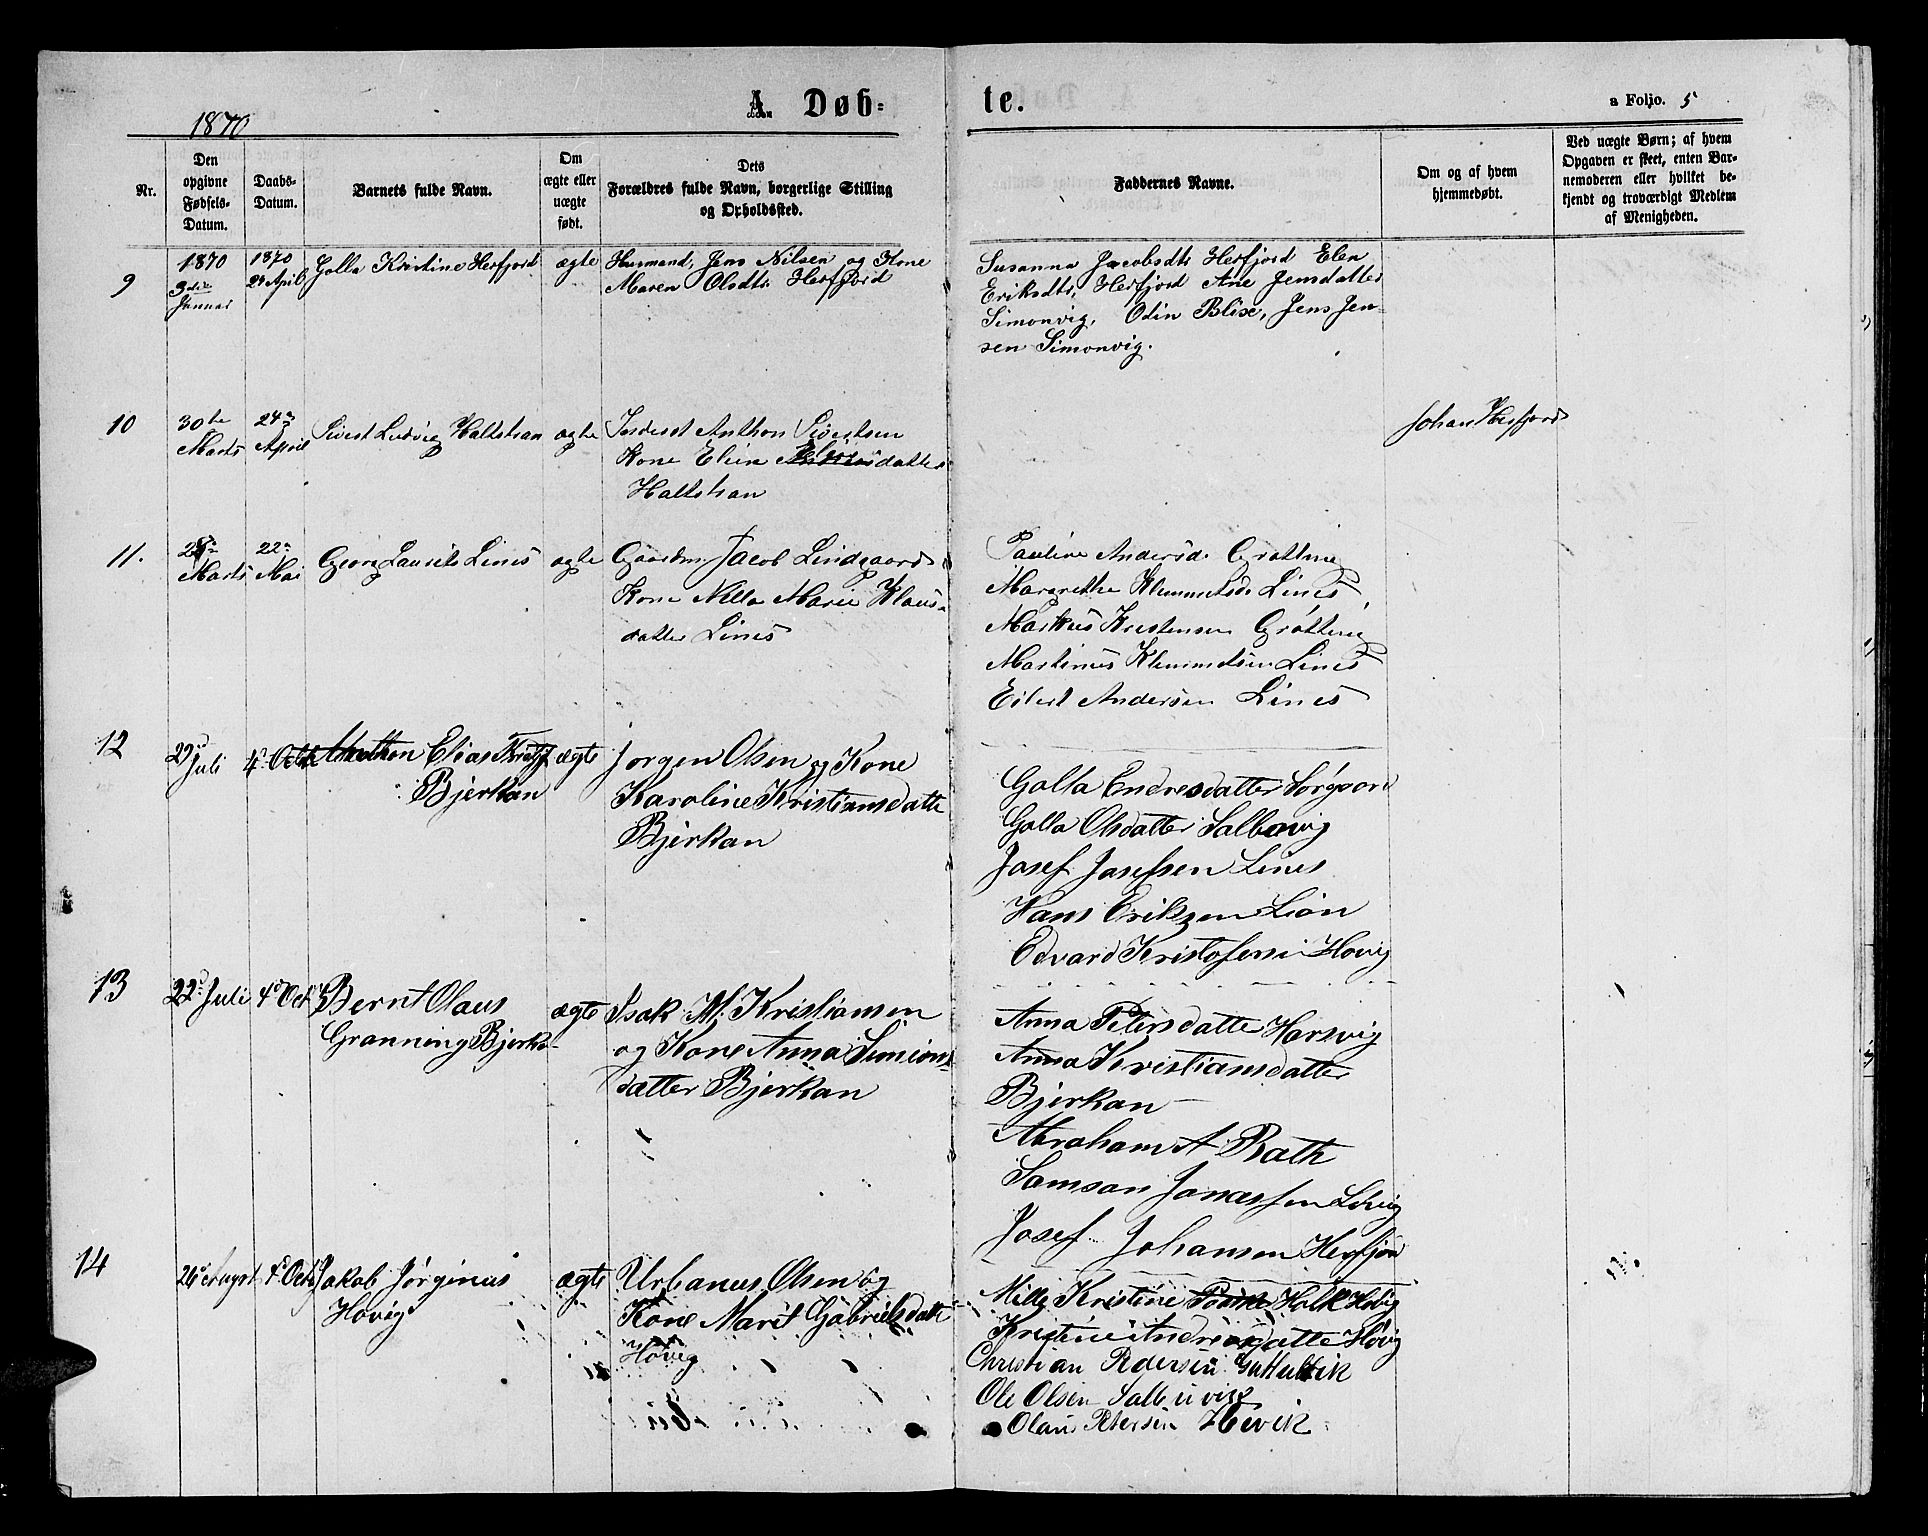 1870
A. Døb=
te.
a Folio. 5
Nr.
Den opgivne Fødsels-Datum.
Daabs-Datum.
Barnets fulde Navn.
Om ægte eller uægte født.
Dets Forældres fulde Navn, borgerlige Stilling og Opholdssted.
Faddernes Navne.
Om og af hvem hjemmedøbt.
Ved uægte Børn; af hvem Opgaven er skeet, enten Barnemoderen eller hvilket bekjendt og troværdigt Medlem af Menigheden.
9
1870
3die
Januar
1870
24 April
Golla Kristine Herfjord
ægte
Husmand, Jens Nilsen og Kone
Maren Olsdtr. Herfjord
Susanna Jacobsdtr Herfjord Elen
Eriksdtr, Herfjord Ane Jensdatter
Simonvig, Odin Blixe, Jens Jen-
sen Simonvig.
10
30te
Marts
24
April
Sivert Ludvig Haltstran
ægte
Inderst Anthon Sivertsen
Kone Elen datter
Haltstran
Johan Herfjord
11.
Marts
22
Mai
Georg Laurits Lines
ægte
Gaardm Jacob Lindgaard
Kone Nella Marie Klaus-
datter Lines
Pauline Andersd. Grøtting
Margrethe Klemmetsd. Lines
Markus Kristensen Grøtting
Martinus Klemmetsen Lines
Eilert Andersen Lines
12
29
Juli
4 Octb
Elias
Bjerkan
ægte
Jørgen Olsen og Kone
Karoline Kristiansdatte
Bjerkan
Golla Endresdatter Sørgaard
Golla Olsdatter Salbuvig
Josef Josefsen Lines
Hans Eriksen Lión
Edvard Kristofersen Hovig
13
22 Juli
4 Oct
Bernt Olaus
Grønning Bjerka-
ægte
Isak M. Kristiansen
og Kone Anna Simions-
datter Bjerkan
Anna Petersdatte Harsvig
Anna Kristiansdatter
Bjerkan
Abraham A Rath
Samson Jonassen
Josef Johansen Herfjor
14
26 August
4 Octb
Jakob Jørginus
Hovig
ægte
Urbanus Olsen og
Kone Marit Gabrielsdatt
Hovig
Milly Kristine Holk Hovig
Kristine Andreasdatte Hovig
Christian Pedersen
Ole Olsen Salbuvik
Olaus Petersen Hevik